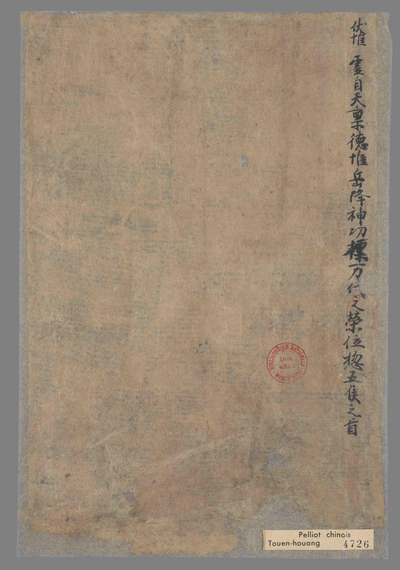 伏惟 靈自天稟德惟岳降神功標万代之榮位惣五侯之首
Pelliot chinois
Touen-houang 4726